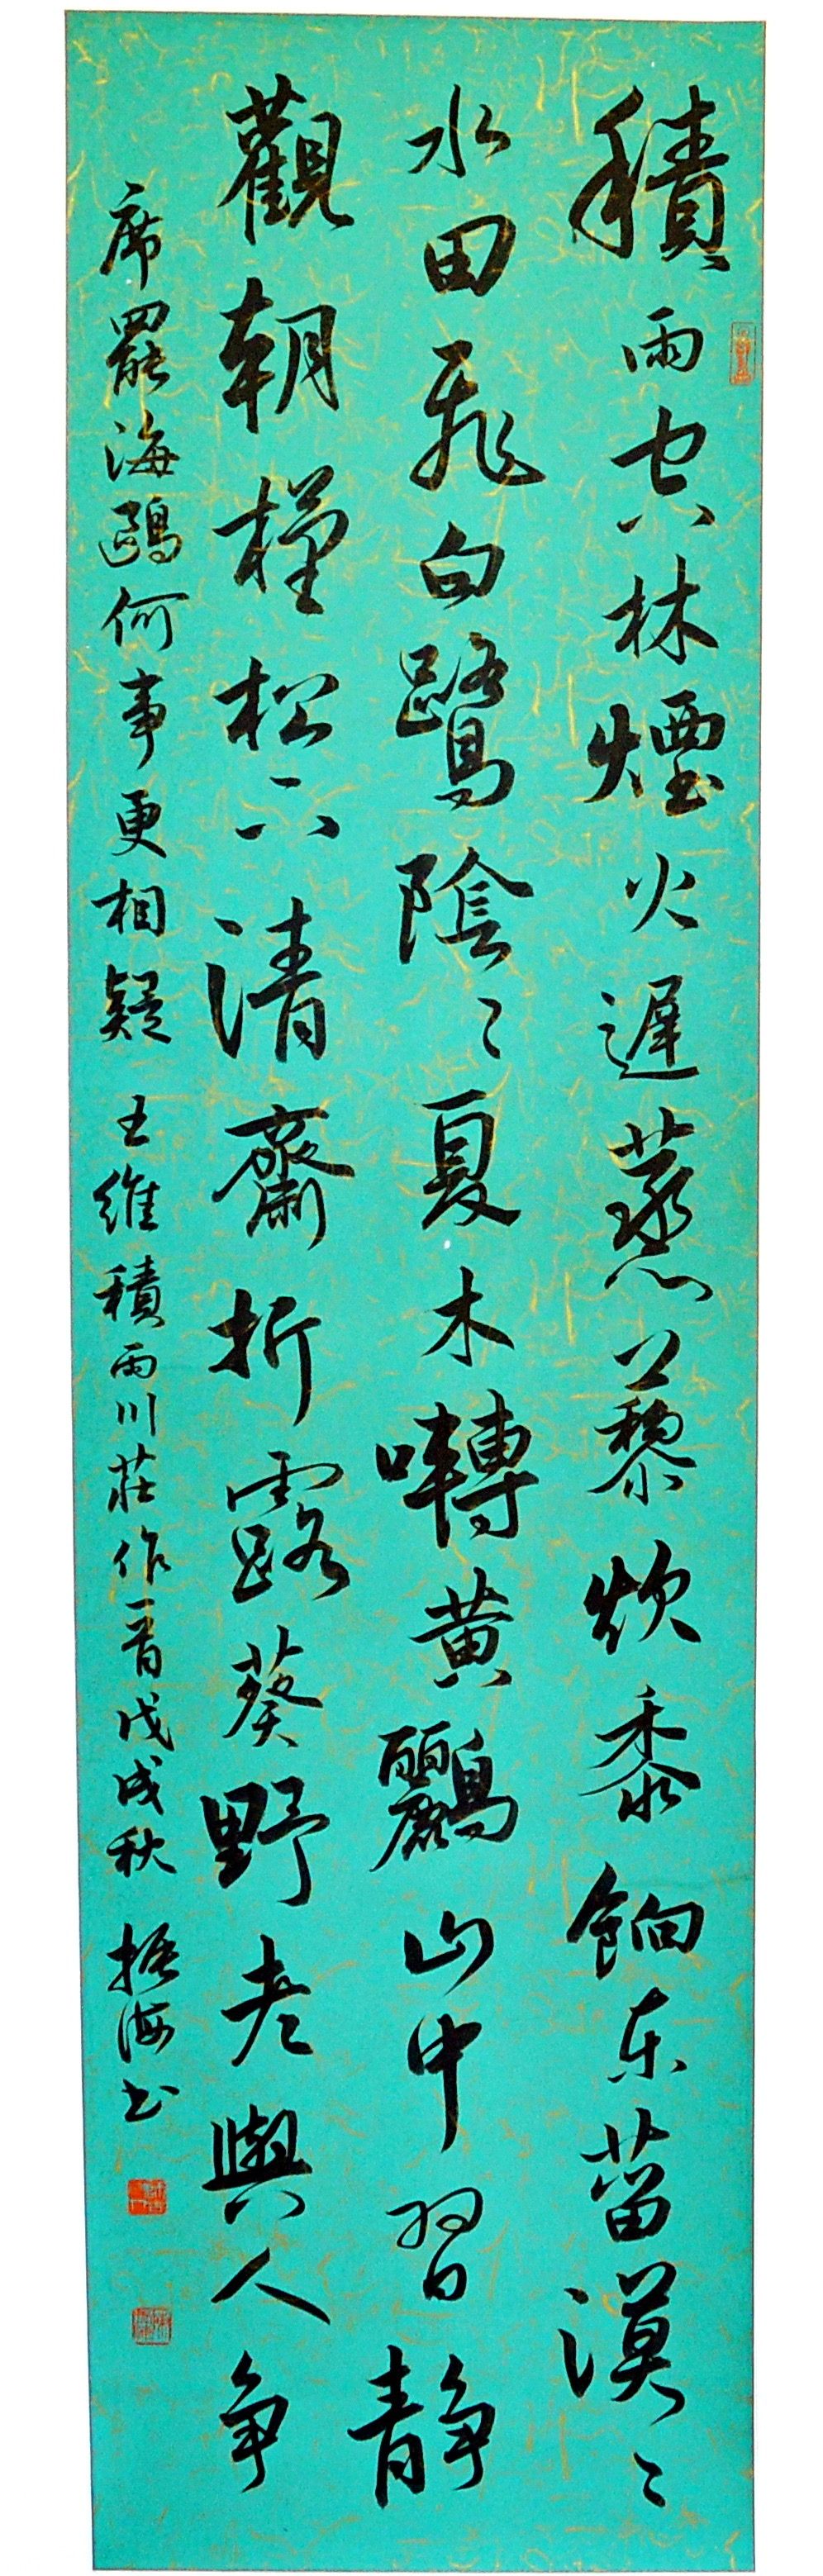 積雨空林煙火遲蒸藜炊黍餉東菑漠〻
水田飛白鷺陰〻夏木囀黄鸝山中習静
觀朝槿松下清齋折露葵野老與人争
席罷海鷗何事更相疑 王維積雨川莊作一首戊戌秋 振海书